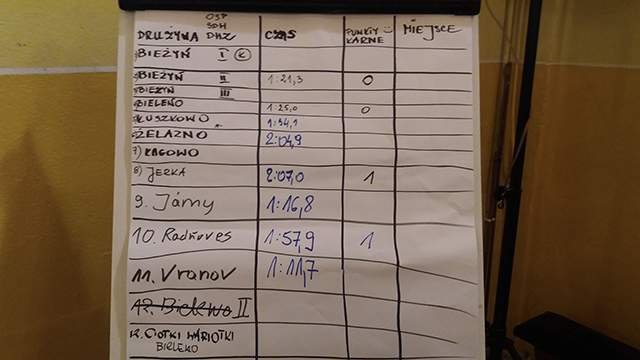 OSP
SDH
DRUŻYNA DHZ CZAS PUNKTY KARNE MIEJSCE
BIEŻYŃ I K
BIEŻYŃ II 1:21,3 0
BIEŻYŃ III
BIELEWO 1:25,0 0
ŁUSZKOWO 1:34,1
ŻELAZNO 2:04,9
7) ŁAGOWO
8) JERKA 2:07,0 1
9. Jámy 1:16,8
10. Radňoves 1:57,9 1
11. Vranov 1:11,7
12. Bielewo II
12. CIOTKI WARIOTKI
BIELEWO